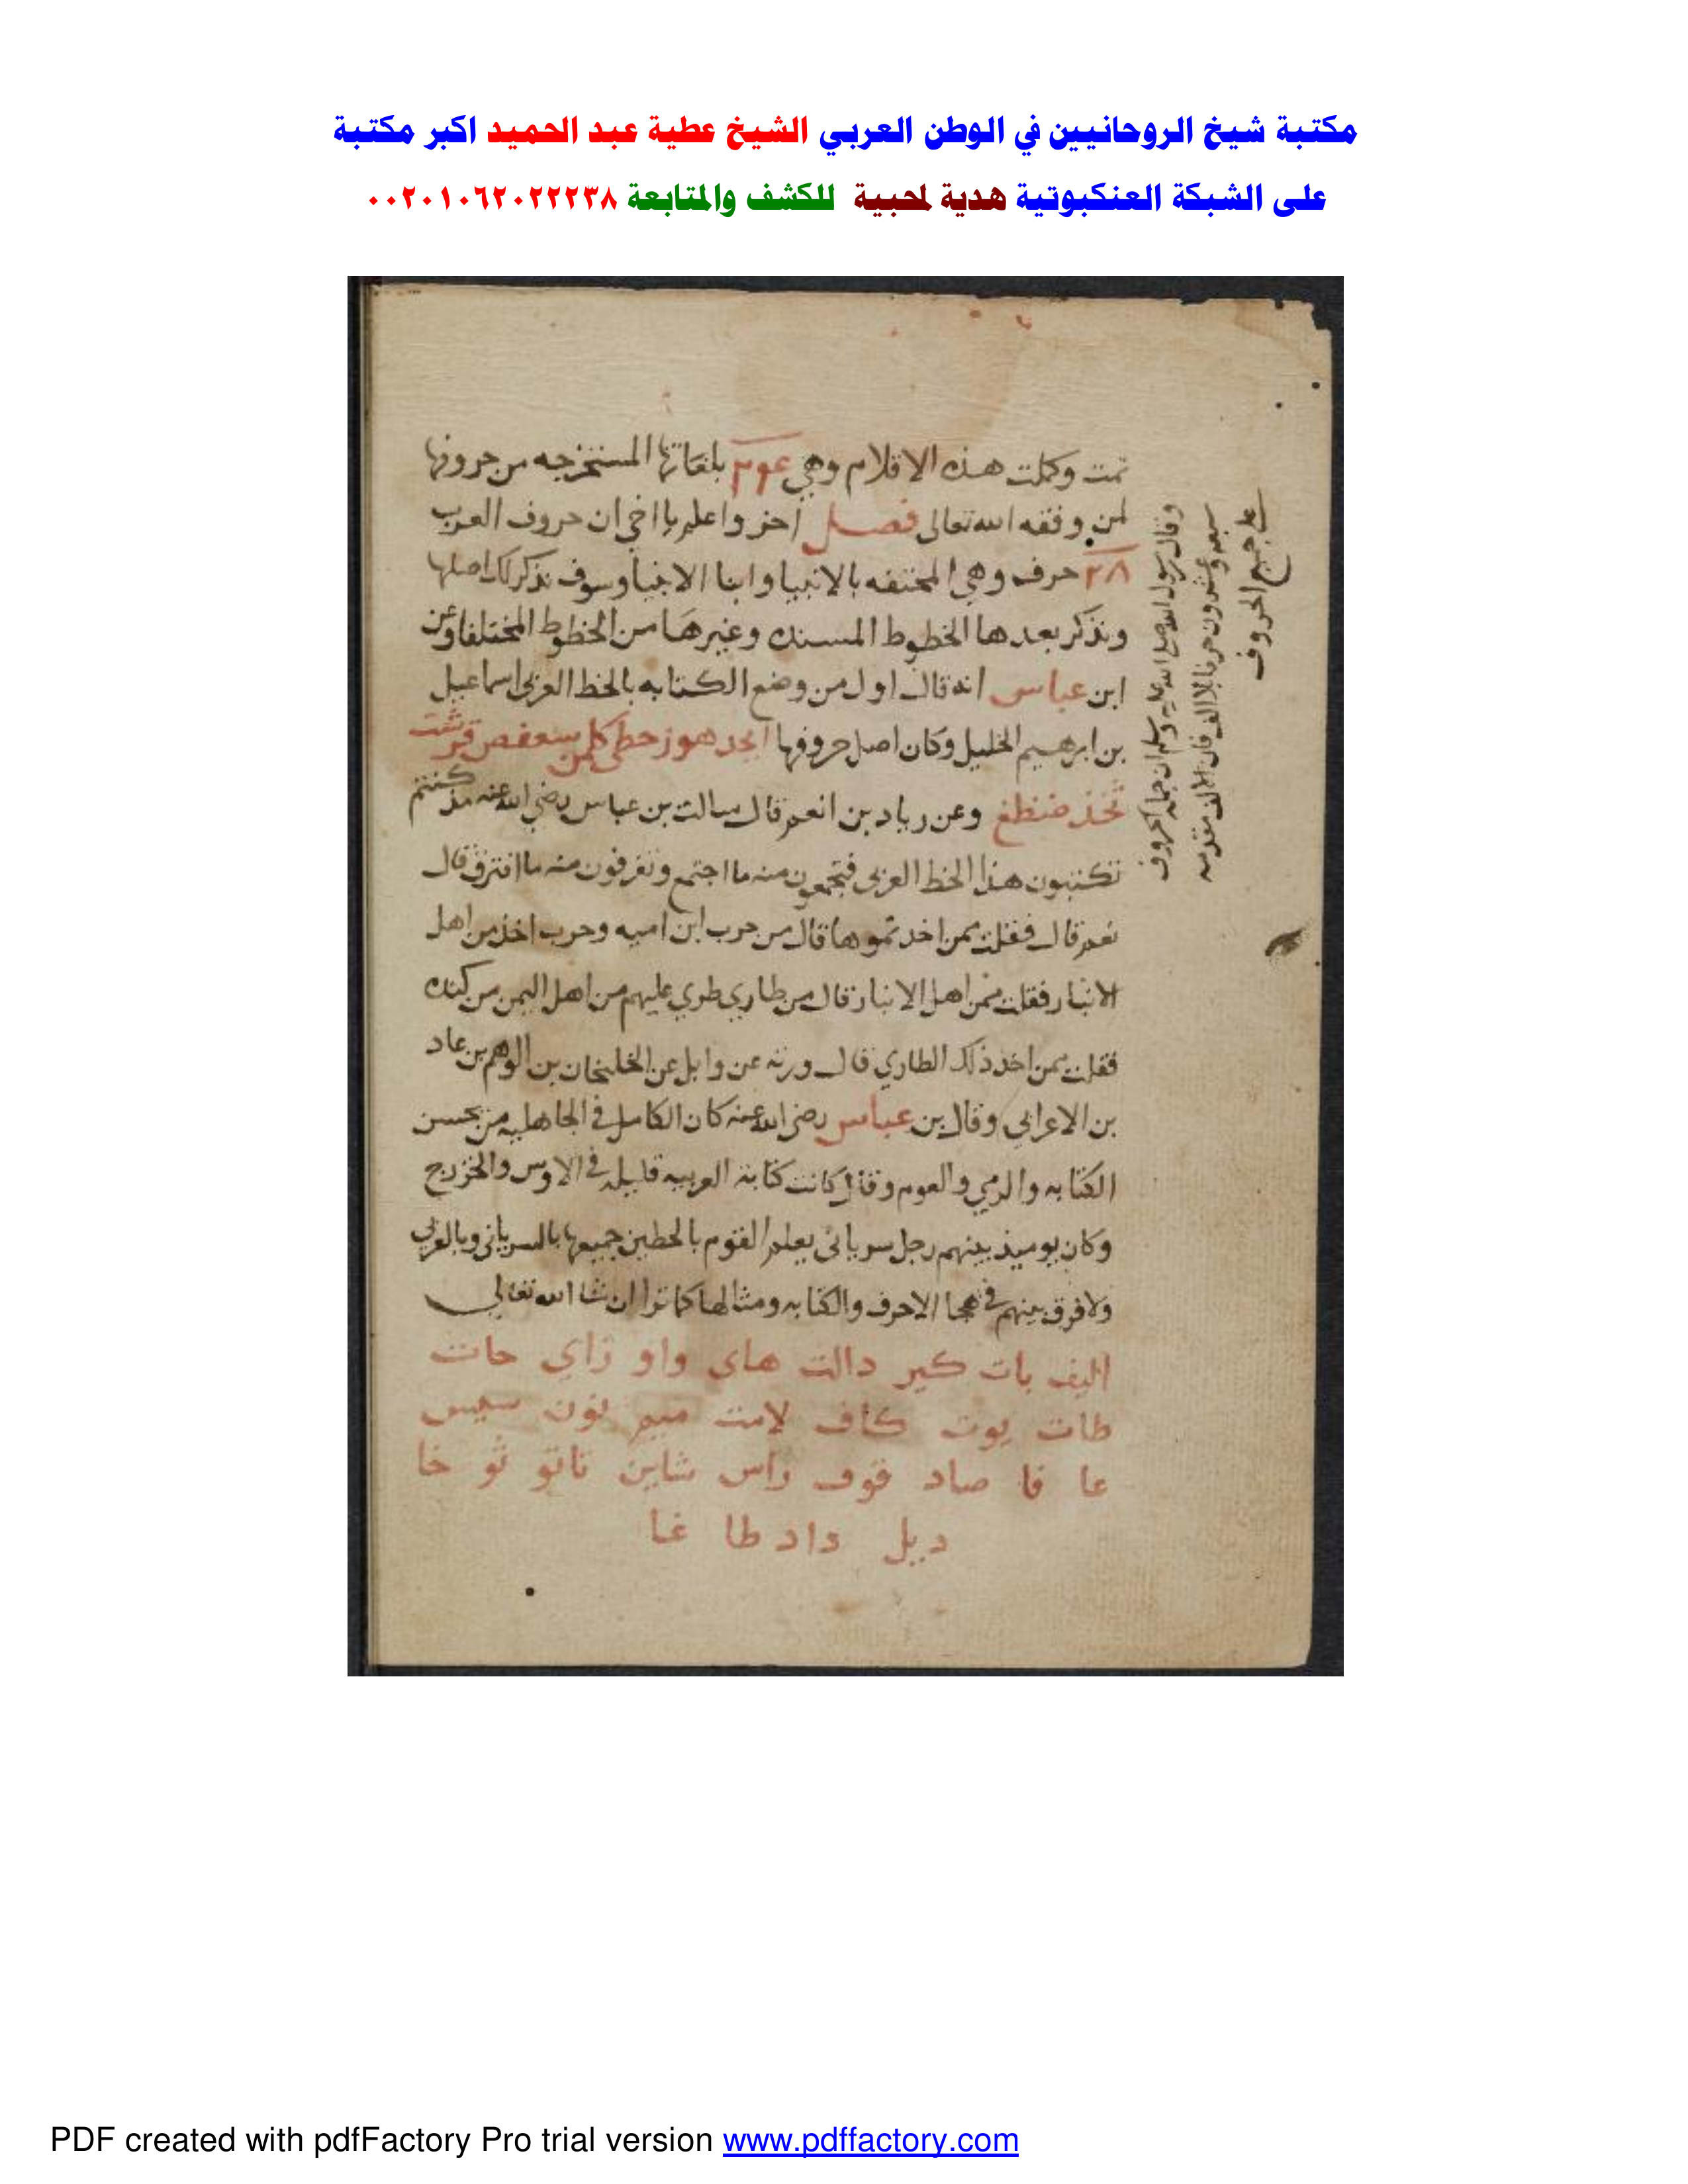 مكتبة شيخ الروحانيين في الوطن العربي الشيخ عطية عبد الحميد اكبر مكتبة
على الشبكة العنكبوتية هدية لمحبية للكشف والمتابعة ٠٠٢٠١٠٦٢٠٢٢٢٣٨
تمت وكملت هذه الاقلام وهي بلغاتها المستخرجه من حروفها
لمن وفقه الله تعالى فصل اخر واعلم يا اخي ان حروف العرب
٢٨ حرف وهي المختفه بالانبيا وابنا الانبيا وسوف نذكر لك اصلها
ونذكر بعدها الخطوط المسنده وغيرها من الخطوط المختلفا وعن
ابن عباس انه قال اول من وضع الكتابه بالخط العربي اسماعيل
بن ابرهيم الخليل وكان اصل حروفها ابجد هوز حطي كلمن سعفص قرشت
ثخذ ضظغ وعن زياد بن انعم قال سالت بن عباس رضي الله عنه مذ كنتم
تكتبون هذا الخط العربي فتجمعون منه ما اجتمع وتفرقون منه ما افترق قال
نعم قال فقلت ممن اخدتموها قال من حرب ابن اميه وحرب اخذ من اهل
الانبار فقلت ممن اهل الانبار قال من طاري طري عليهم من اهل اليمن من كنده
فقلت ممن اخد ذلك الطاري قال ورثه عن وابل عن الخلنجان بن الوهم بن عاد
بن الاعرابي وقال بن عباس رضي الله عنه كان الكامل في الجاهليه من يحسن
الكتابه والرمي والعوم وقال كانت كتابة العربيه قليله في الاوس والخزرج
وكان يوميذ بينهم رجل سرياني يعلم القوم بالخطين جميعها بالسرياني وبالعربي
ولا فرق بينهم في هجا الاحرف والكتابه ومثالها كما ترا ان شا الله تعالي
اليف بات كير دالت هاي واو زاي حات
طات يوت كاف لامت ميم نون سيس
عا فا صاد قوف راس شاين تاتو ثو خا
ديل داد طا غا
وقال رسول الله صلى الله عليه وسلم ان جملة الحروف
سبعه وعشرون حرفا بلا الف فان الالف مقدمه
على جميع الحروف
PDF created with pdfFactory Pro trial version www.pdffactory.com